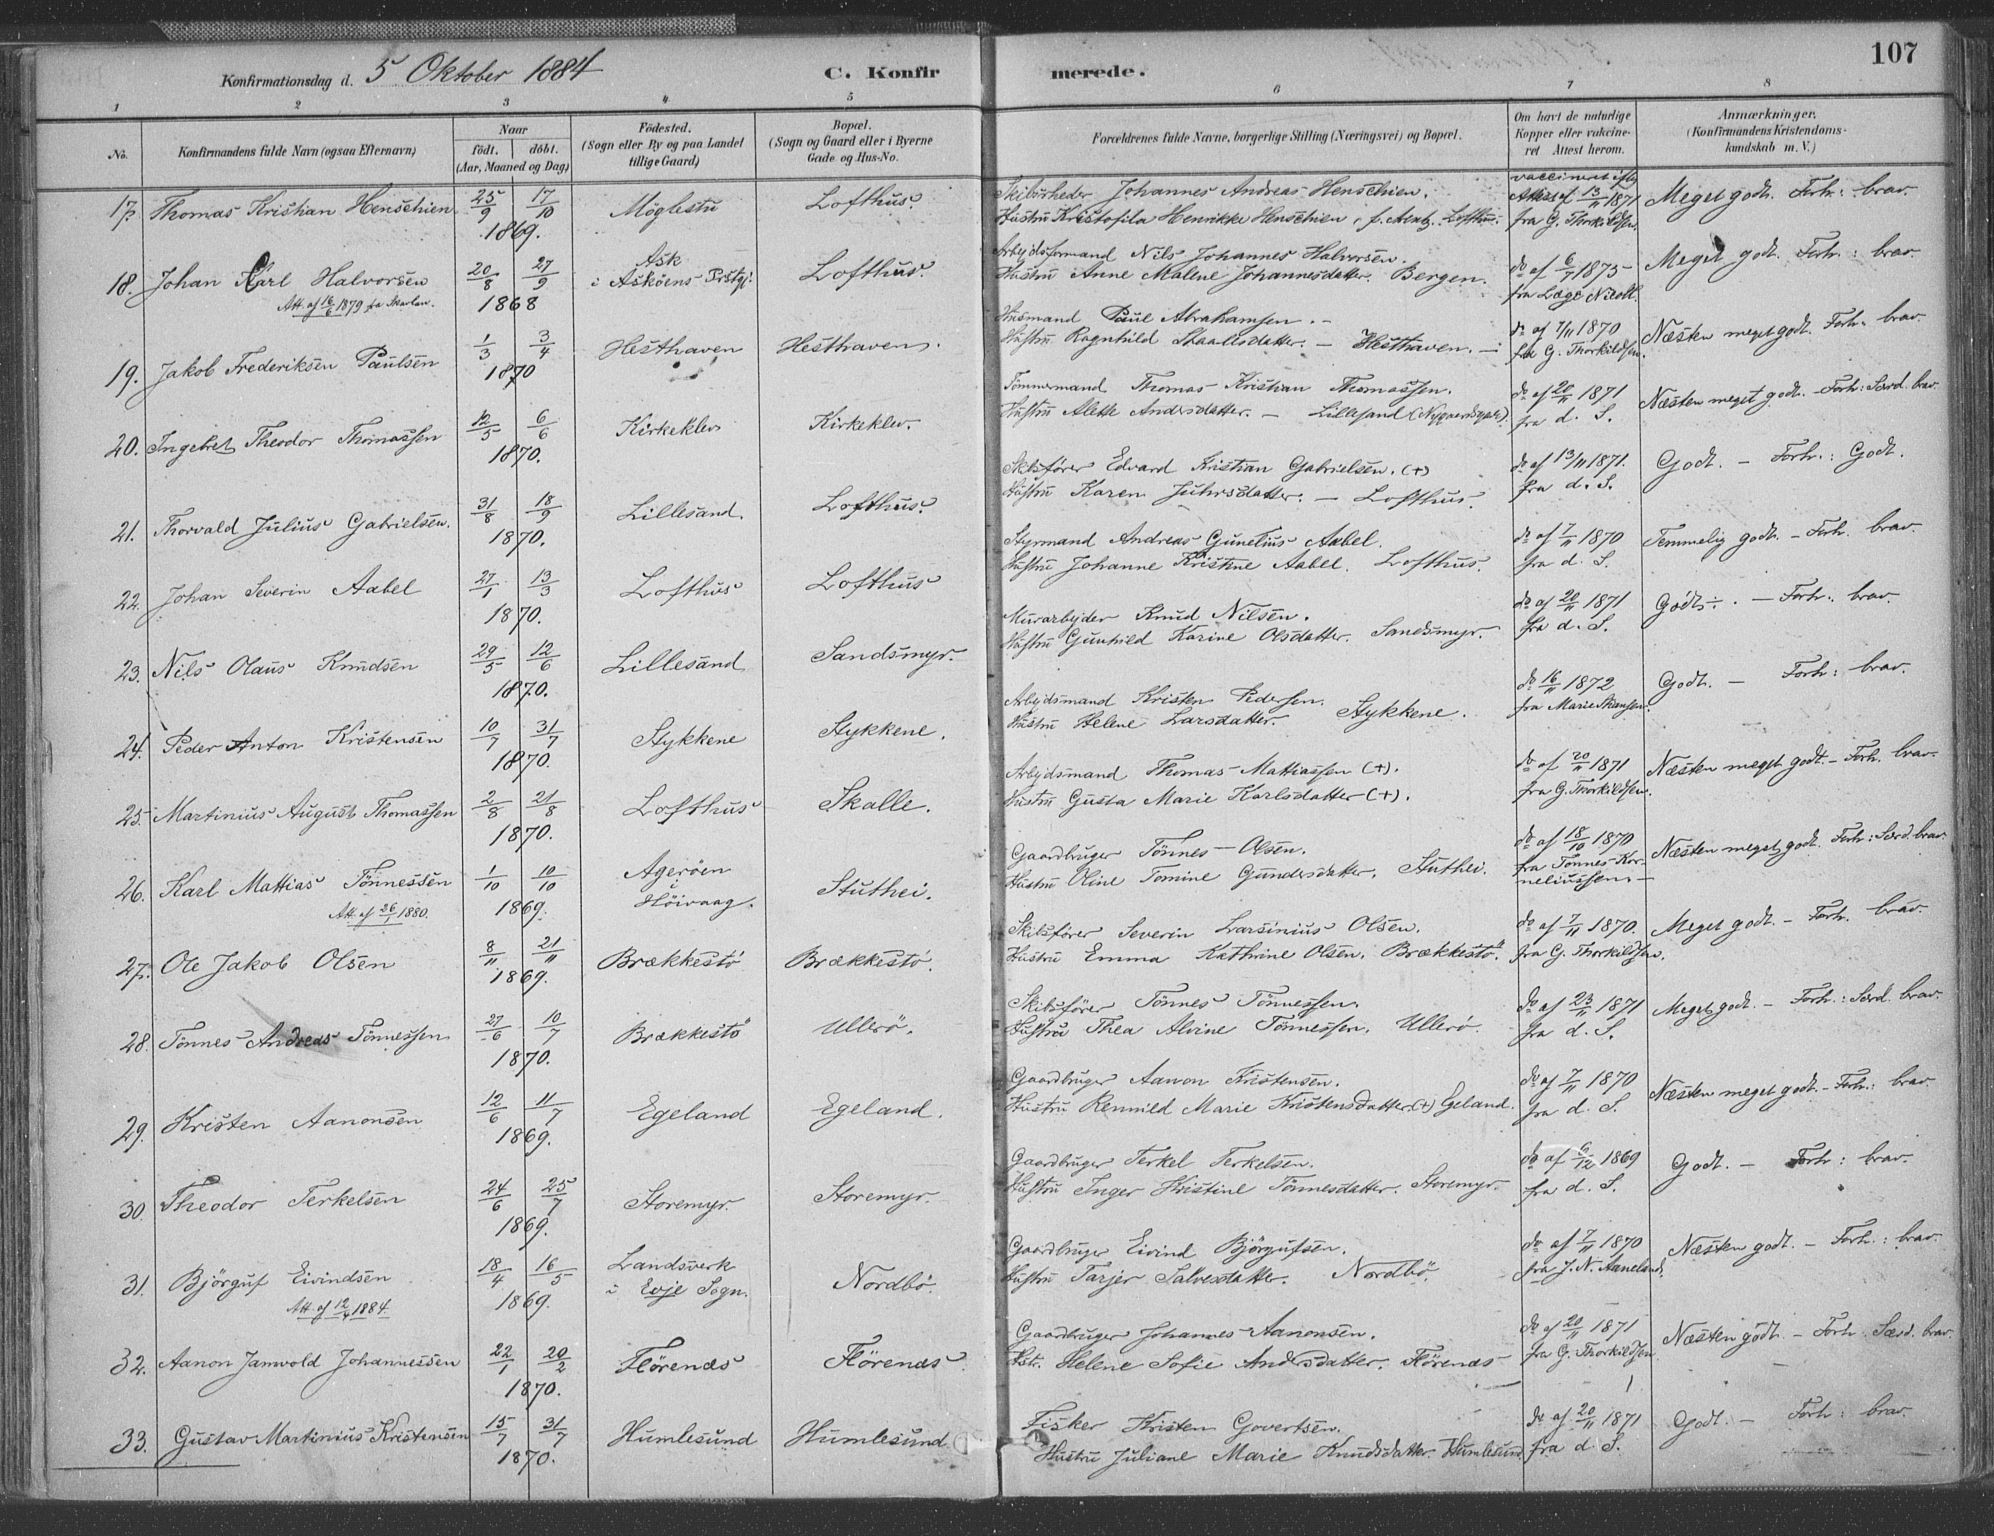 107
Konfirmationsdag d. 5 Oktober 1884 C. Konfirmerede.
1 2 3 4 5 6 7 8
No. Konfirmandens fulde Navn (ogsaa Efternavn) Naar födt. döbt. (Aar, Maaned og Dag) Födested. (Sogn eller By og paa Landet tillige Gaard) Bopæl. (Sogn og Gaard eller i Byerne Gade og Hus-No. Forældrenes fulde Navne, borgerlige Stilling (Næringsvei) og Bopæl. Om havt de naturlige Kopper eller vakcineret Attest herom. Anmærkninger. (Konfirmandens Kristendomskundskab m. V.)
17. Thomas Kristian Henschien 25/9 17/10 1869. Möglestu Lofthus
Skibsrheder Johannes Andreas Henschien.
Hustru Kristofila Henrikke Henschien, f. Lofthus.
vaccinert efter Attest af 13/11 1871 fra G. Thorkildsen. Meget godt. Forh: brav.
18. Johan Karl Halvorsen 20/8 27/9 1868 Ask i Asköens Prstgj. Lofthus
Att. af 16/6 1879 fra
Arbeidsformand Nils Johannes Halvorsen.
Hustru Anne Malene Johannesdatter. Bergen.
do af 6/7 1875 fra Læge Meget godt. Forh: brav.
19. Jakob Frederiksen Paulsen 1/3 3/4 1870 Hesthaven Hesthaven.
Husmand Paul Abrahamsen.
Hustru Ragnhild Staalesdatter. – Hesthaven.
do af 7/11 1870 fra G. Thorkildsen. Næsten meget godt. Forh: brav.
20. Ingebret Theodor Thomassen 12/5 6/6 1870. Kirkeklev Kirkeklev.
Tömmermand Thomas Kristian Thomassen.
Hustru Alette Andrsdatter. – Lillesand
do af 20/11 1871 fra d. S. Næsten meget godt. – Forh: Særd. brav.
21. Thorvald Julius Gabrielsen. 31/8 18/9 1870. Lillesand. Lofthus.
Skibsförer Edvard Kristian Gabrielsen. (+)
Hustru Karen Juhrsdatter. – Lofthus.
do af 13/11 1871. fra d. S. Godt. – Forh.: Godt.
22. Johan Severin Aabel 27/1 13/3 1870. Lofthus Lofthus
Styrmand Andreas Gunelius Aabel.
Hustru Johanne Kristine Aabel. Lofthus.
do af 7/11 1870 fra d. S. Temmelig godt. – Forh. brav.
23. Nils Olaus Knudsen 29/5 12/6 1870. Lillesand Sandsmyr.
Murarbeider Knud Nilsen.
Hustru Gunhild Karine Olsdatter. Sandsmyr.
do af 20/11 1871 fra d. S. Godt. – Forh: brav.
24. Peder Anton Kristensen 10/7 31/7 1870. Stykkene Stykkene.
Arbeidsmand Kristen Pedersen.
Hustru Helene Larsdatter. Stykkene.
do 16/11 1872 fra Marie Godt. – Forh: brav.
25. Martinius August Thomassen 2/8 21/8 1870. Lofthus Skalle.
Arbeidsmand Thomas Mattiassen (+).
Hustru Gusta Marie Karlsdatter (+).
do af 20/11 1871 fra G. Thorkildsen. Næsten meget godt. – Forh. brav.
26. Karl Mattias Tönnessen 1/10 10/10 1869. Ageröen i Höivaag. Stuthei.
Att. af 26/1 1880.
Gaardbruger Tönnes Olsen.
Hustru Oline Tomine Gundersdatter. Stuthei.
do af 18/10 1870 fra Tönnes Korneliussen. Næsten meget godt. Forh: Særd. brav.
27. Ole Jakob Olsen 8/11 21/11 1869. Brækkestö Brækkestö.
Skibsförer Severin Larsinius Olsen.
Hustru Emma Kathrine Olsen. Brækkestö.
do af 7/11 1870. fra G. Thorkildsen. Meget godt. – Forh. brav.
28. Tönnes Andreas Tönnessen 27/6 10/7 1870. Brækkestö Ullerö.
Skibsförer Tönnes Tönnessen.
Hustru Thea Alvine Tönnessen. Ullerö.
do af 23/11 1871 fra d. S. Meget godt. – Forh: Særd. brav.
29. Kristen Aanonsen 12/6 11/7 1869. Egeland Egeland.
Gaardbruger Aanon Kristensen.
Hustru Renmild Marie Kristensdatter (+) Egeland.
do af 7/11 1870 fra d. S. Næsten meget godt. – Forh: brav.
30. Theodor Terkelsen 24/6 25/7 1869. Storemyr. Storemyr.
Gaardbruger Terkel Terkelsen.
Hustru Inger Kristine Tönnesdatter. Storemyr.
do af 6/12 1869 fra d. S. Godt. – Forh: brav.
31. Björguf Eivindsen 18/4 16/5 1869. Landsverk i Evje Sogn. Nordbö.
Att. af 12/4 1884.
Gaardbruger Eivind Björgufsen.
Hustru Tarjer Salvesdatter. Nordbö.
do af 7/11 1870 fra J. N. Aaneland. Næsten godt. – Forh: brav.
32. Aanon Jamvold Johannessen 22/1 20/2 1870. Flörenæs Flörenæs
Gaardbruger Johannes Aanonsen.
Hstr. Helene Sofie Andersdatter. Flörenæs
do af 20/11 1871 fra G. Thorkildsen Næsten godt. – Forh: Særd. brav.
33. Gustav Martinius Kristensen 15/7 31/7 1870. Humlesund Humlesund
Fisker Kristen Govertsen.
Hustru Juliane Marie Knudsdatter. Humlesund
do af 20/11 1871 fra d. S. Godt. – Forh: brav.